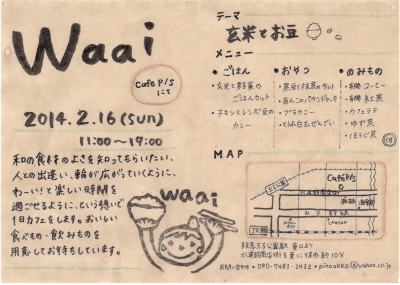 Waai
Cafe P/S
にて
2014.2.16(sun)
11:00~17:00
和の食材のよさを知ってもらいたい、
人との出逢い、輪が広がっていくように、
わーい!と楽しい時間を
過ごせるように、という想いで
1日カフェをします。おいしい
食べもの・飲みものを
用意してお待ちしています。
waai
テーマ
玄米とお豆
メニュー
・ごはん
玄米と野菜の
ごはんセット
・チキンとレンズ豆の
カレー
・おやつ
・黒豆と抹茶のタルト
・あんこのパウンドケーキ
・ブラウニー
・とうふ白玉ぜんざい
・のみもの
・有機コーヒー
・有機紅茶
・カフェラテ
・ゆず茶
・ほうじ茶
MAP
CafeP/S
水道筋商店街
阪急王子公園駅 東口より
水道筋商店街を東にとほ約10分
お問い合わせ・090-7483-2432・pinoakko@yahoo.co.jp